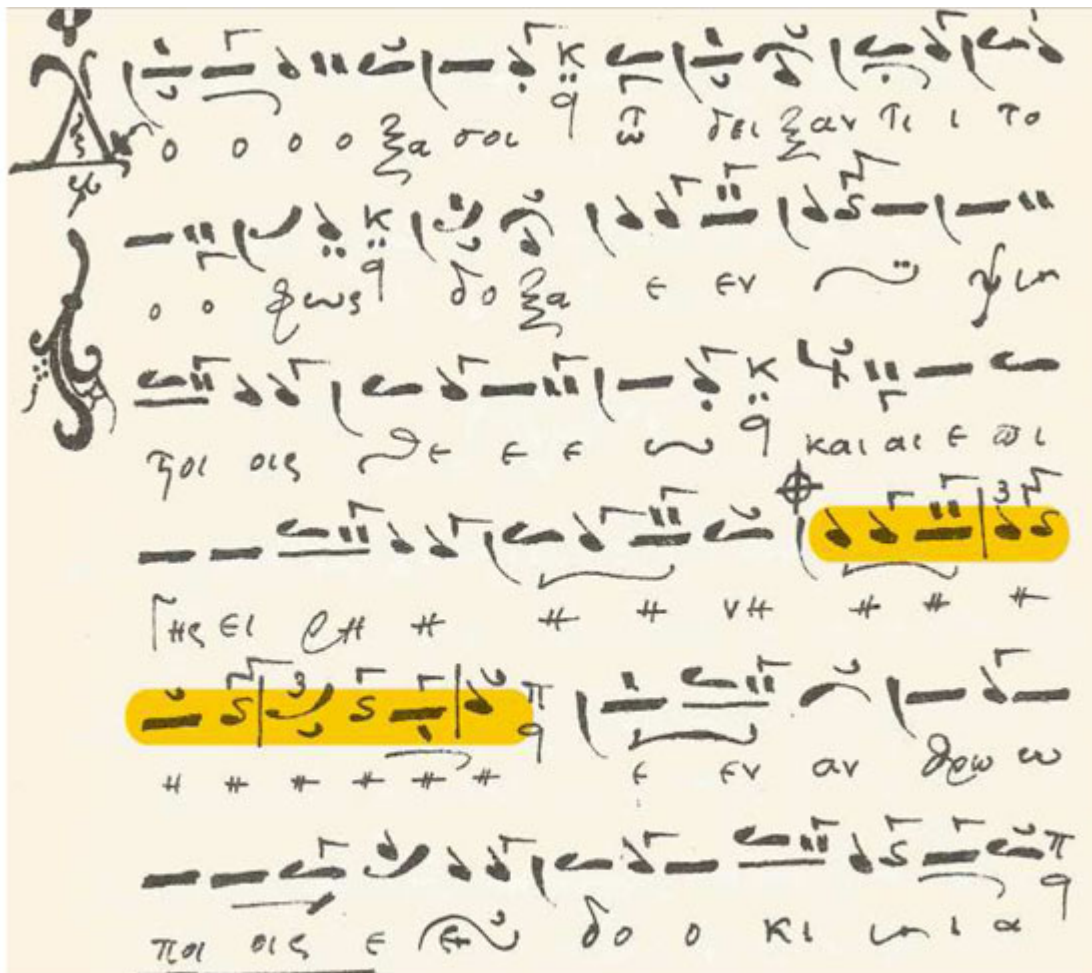 Δ ο ο ο ο ξα σοι τω δει ξαν τι ι το
ο ο φως δο ξα ε εν υ ψι
στοι οις Θε ε ε ω και αι ε πι
γης ει ρη η η η νη η η η
η η η η η η ε εν αν θρω ω
ποι οις ε ευ δο ο κι ι ι α